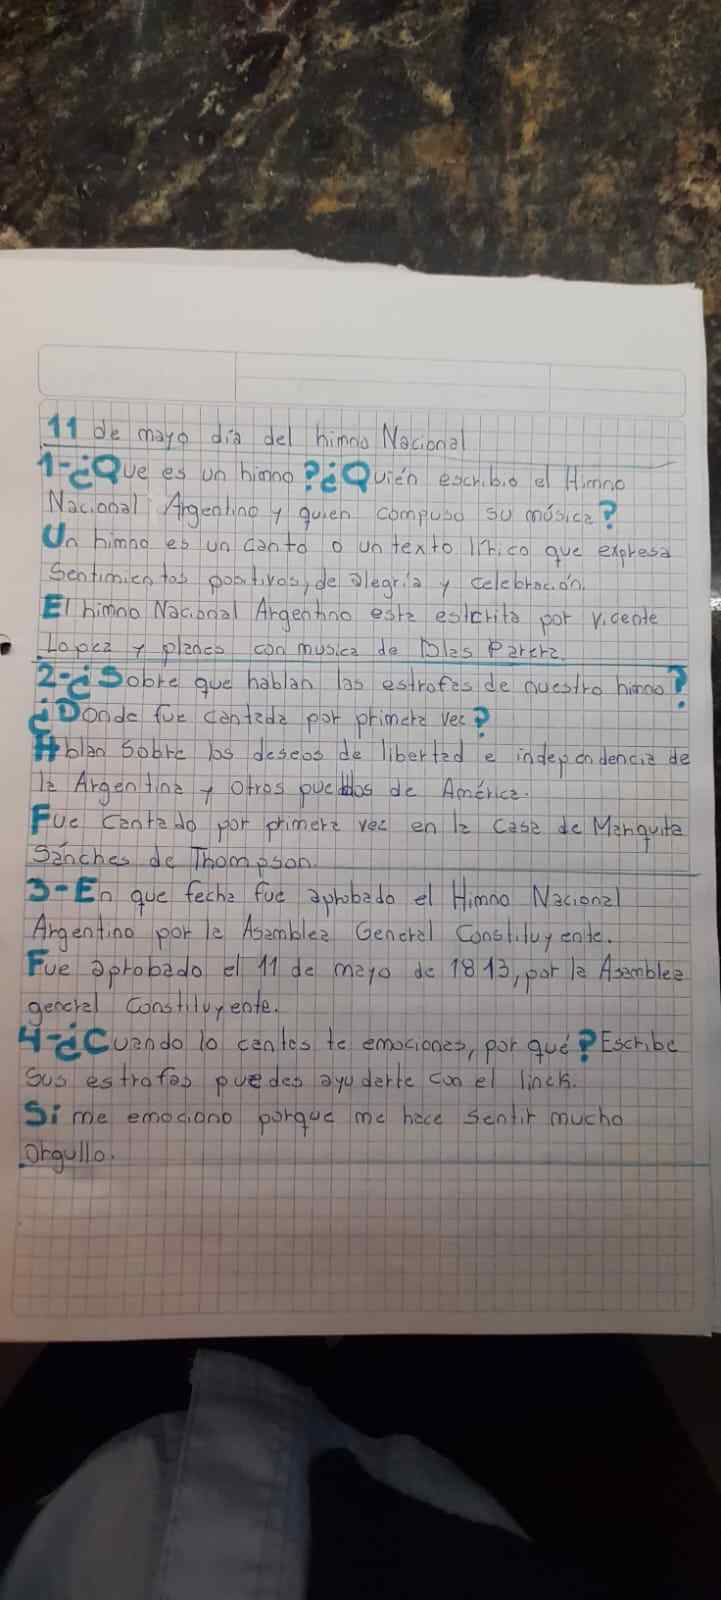 11 de mayo día del himno Nacional
1-¿Que es un himno? ¿Quién escribio el Himno
Nacional Argentino y quien compuso su música?
Un himno es un canto o un texto lírico que expresa
Sentimientos positivos, de alegría y celebración.
El himno Nacional Argentino esta escrito por vicente
Lopez y planes con musica de Blas Parera.
2-¿Sobre que hablan las estrofas de nuestro himno?
¿Donde fue cantada por primera vez?
Hablan Sobre los deseos de libertad e independencia de
la Argentina y otros pueblos de América.
Fue Cantado por primera vez en la casa de Mariquita
Sánches de Thompson.
3-En que fecha fue aprobado el Himno Nacional
Argentino por la Asamblea General Constituyente.
Fue aprobado el 11 de mayo de 1813, por la Asamblea
general Constituyente.
4-¿Cuando lo cantas te emociones, por qué? Escribe
Sus estrofas puedes ayudarte con el linck.
Si me emociono porque me hace Sentir mucho
orgullo.